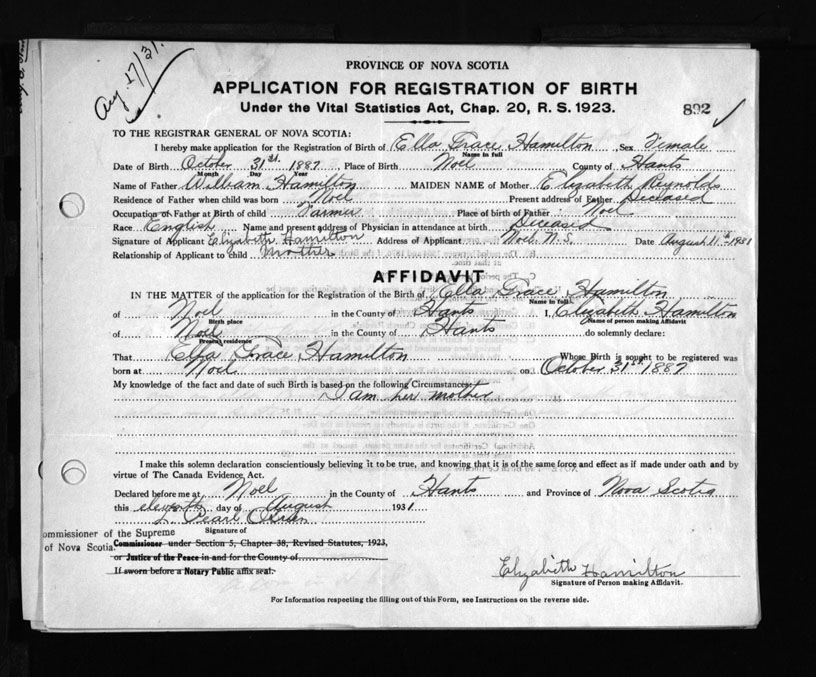 Aug. 17/31.
PROVINCE OF NOVA SCOTIA
APPLICATION FOR REGISTRATION OF BIRTH
Under the Vital Statistics Act, Chap. 20, R. S. 1923.
892
TO THE REGISTRAR GENERAL OF NOVA SCOTIA:
I hereby make application for the Registration of Birth of Ella Grace Hamilton Sex Female
Name in full
Date of Birth October 31st. 1887 Place of Birth Noel County of Hants
Month Day Year
Name of Father William Hamilton MAIDEN NAME of Mother Elizabeth Reynolds
Residence of Father when child was born Noel Present address of Father Deceased
Occupation of Father at Birth of child Farmer Place of birth of Father Noel
Race English Name and present address of Physician in attendance at birth Deceased
Signature of Applicant Elizabeth Hamilton Address of Applicant Noel. N.S. Date August 11th 1931
Relationship of Applicant to child Mother
AFFIDAVIT
IN THE MATTER of the application for the Registration of the Birth of Ella Grace Hamilton
Name in full
of Noel in the County of Hants I, Elizabeth Hamilton
Birth place Name of person making Affidavit
of Noel in the County of Hants do solemnly declare:
Present residence
That Ella Grace Hamilton Whose Birth is sought to be registered was
born at Noel on October 31st 1887
My knowledge of the fact and date of such Birth is based on the following Circumstances:
I am her mother
I make this solemn declaration conscientiously believing it to be true, and knowing that it is of the same force and effect as if made under oath and by
virtue of The Canada Evidence Act.
Declared before me at Noel in the County of Hants and Province of Nova Scotia
this eleventh day of August 1931
Pearl
Signature of
ommissioner of the Supreme
of Nova Scotia.
Commissioner under Section 5, Chapter 38, Revised Statutes, 1923,
or Justice of the Peace in and for the County of
If sworn before a Notary Public affix seal.
Elizabeth Hamilton
Signature of Person making Affidavit.
For Information respecting the filling out of this Form, see Instructions on the reverse side.